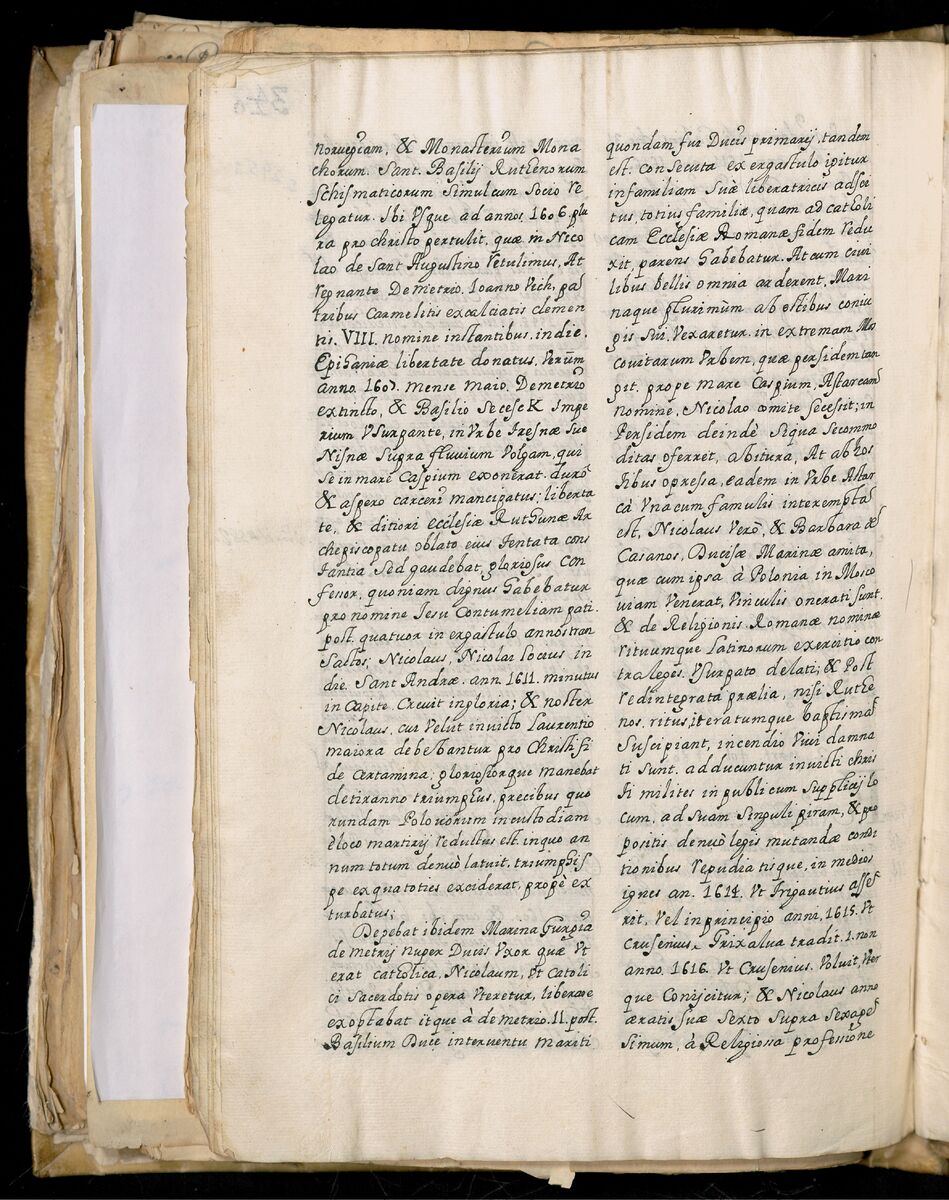 norvegiam, & Monasterium Mona
chorum. Sant. Basilij Ruthenorum
Schismaticorum Simulcum Socio re
legatur. Ibi usque ad annos 1606. plu
ra pro christo pertulit, quæ in Nico
lao de Sant Augustino retulimus, At
regnante Demetrio. Ioanno Vich, pa
tribus Carmelitis excalciatis clemen
tis. VIII. nomine instantibus, in die.
Epiphaniæ libertate donatus, Verūm
anno. 1607. mense maio. Demetrio
extincto, & Basilio Secesck Impe
rium Usurpante, in Urbe
Nisnæ Supra fluvium Volgam, qui
se in marē Caspium exonerat. durō
& aspero carceri mancipatus; liberta
te, & ditiori ecclesiæ Ruthunæ Ar
chepiscopatu oblato eius tentata cons
tantia Sed gaudebat, gloriosus con
fessor, quoniam dignus habebatur
pro nomine Iesu Contumeliam pati.
post. quatuor in ergastulo annos tran
sactos, Nicolaus, Nicolai Socius in
die. Sant Andræ. ann. 1611. minutus
in capite. Crevit in gloria; & noster
Nicolaus. cui velut invicto Laurentio
maiora debebantur pro Christi fi
de certamina; gloriosiorque manebat
de tiranno triumphus, precibus quo
rundam Polonorum in custodiam
è loco martirij reductus est. in quo an
num totum denuò latuit, triumphi s
pe ex qua toties exciderat, propè ex
turbatus;
Degebat ibidem Marina
demetrij nuper Ducis Uxor quæ Vt
erat catholica, Nicolaum, Vt Catoli
ci Sacerdotis opera Vteretur, liberare
exoptabat itque à demetrio. 11. post.
Basilium Duce interventu mariti
quondam sui Ducis primarij, tandem
est. consecuta ex ergastulo igitur
in familiam Suæ liberatricis adsci
tus, totius familiæ, quam ad catholi
cam Ecclesiæ Romanæ fidem redu
xit, parens habebatur. At cum civi
libus bellis omnia arderent, Mari
naque plurimùm ab ostibus coniu
gis Sui, Vexaretur. in extremam Mos
covitarum Urbem, quæ persidem tan
git. prope mare Caspium, Astarcam
nomine, Nicolao comite secessit; in
Persidem deindè Siqua se commo
ditas oferret, abitura, At ab hos
tibus opressa, eadem in Urbe Astar
cà Vna cum famulis interempta
est, Nicolaus Verò, & Barbara
Casanos, Ducisæ Marinæ amita,
quæ cum ipsa à Polonia in Mosco
viam Venerat, Vinculis onerati sunt.
& de Religionis Romanæ nomine
rituumque Latinorum exercitio con
tra leges. Usurpato delati; & Post
redintegrata prælia, nisi Ruthe
nos. ritus, iteratumque baptisma
Suscipiant, incendio Vivi damna
ti Sunt. adducuntur invicti chris
ti milites in publicum Supplicij lo
cum, ad Suam Singuli piram, & pro
positis denuò legis mutandæ condi
tionibus repudiatisque, in medios
ignes an. 1614. Vt Frigautius asse
rit, Vel in principio anni, 1615. Vt
Crusenius, Grixalua tradit. 1. non
anno. 1616. Vt Crusenius. Voluit, Vter
que Conijcitur; & Nicolaus anno
æratis suæ Sexto Supra Sexage
Simum, à Religiosa professione